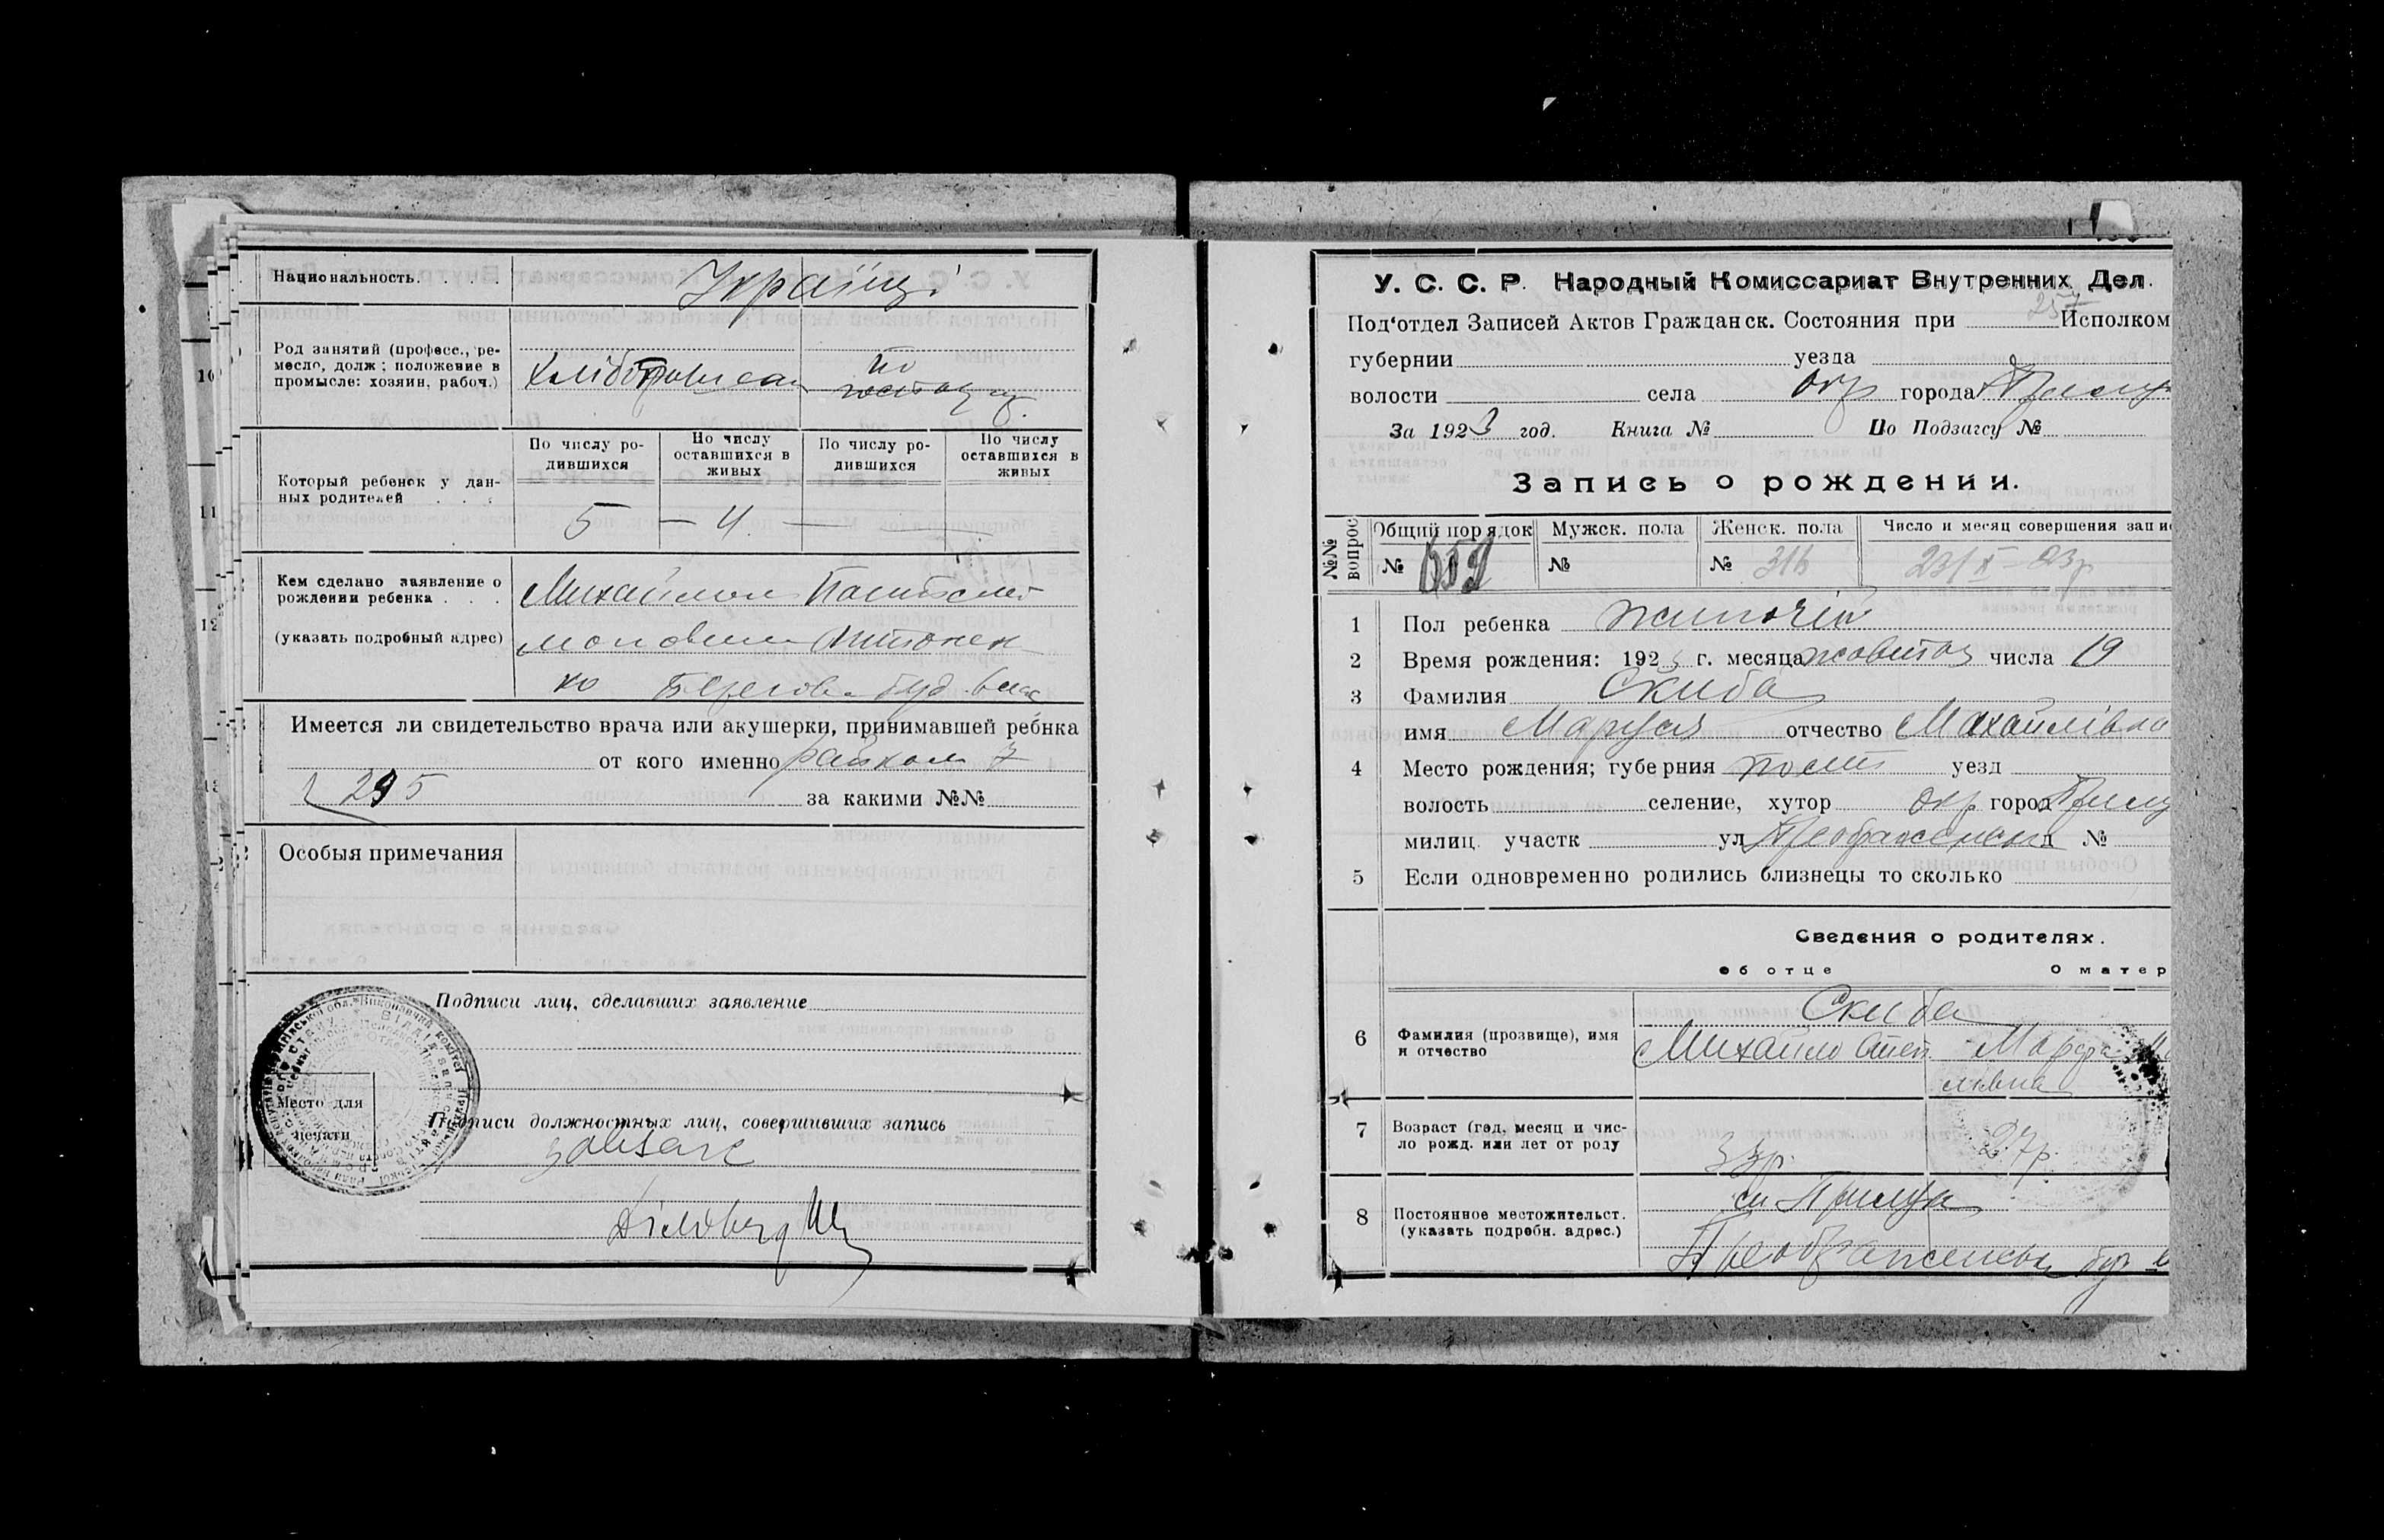 Национальность. . . . Українці
Род занятий (професс., ре-
месло, долж; положение в
промысле: хозяин, рабоч.)
10
По числу ро-
дившихся
По числу
оставшихся в
живых
По числу ро-
дившихся
По числу
оставшихся в
живых
Который ребенок у дан-
ных родителей . . .
11
5 — 4 —
Кем сделано заявление о
рождении ребенка . . .
Михайлом
12
(указать подробный адрес)
Имеется ли свидетельство врача или акушерки, принимавшей ребнка
от кого именно райком 7
295 за какими №№
Особыя примечания
Подписи лиц, сделавших заявление
Место для
печати
Подписи должностных лиц, совершивших запись
завзагс
У. С. С. Р. Народный Комиссариат Внутренних Дел.
257
Под‘отдел Записей Актов Гражданск. Состояния при Исполком
губернии уезда
волости села окр города Прилу
За 1923 год. Книга № По Подзагсу №
Запись о рождении.
№№ вопрос
Общий порядок Мужск. пола Женск. пола Число и месяц совершения запис
№ 659 № № 316 23/X – 23р
1 Пол ребенка жиночій
2 Время рождения: 1923 г. месяца жовтня числа 19
3 Фамилия Скиба
имя Маруся отчество Михайлівна
4 Место рождения; губерния Полт уезд
волость селение, хутор окр город Прилу
милиц. участк ул Преображенська д №
5 Если одновременно родились близнецы то сколько
Сведения о родителях.
об отце О матер
Скиба
6 Фамилия (прозвище), имя
и отчество
Михайло Степ Марфа
7 Возраст (год, месяц и чис-
ло рожд. или лет от роду
33р. 27р.
8 Постоянное местожительст.
(указать подробн. адрес.)
м Прилука
Преображенська буд